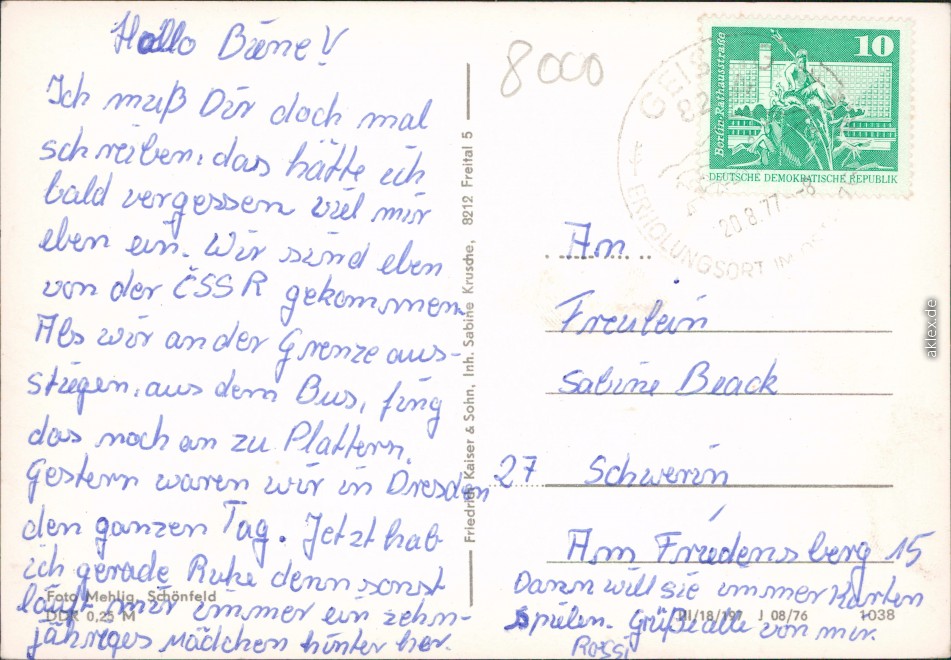 Hallo Biene!
Ich muß Dir doch mal
schreiben, das hätte ich
bald vergessen viel mir
eben ein. Wir sind eben
von der ČSSR gekommen.
Als wir an der Grenze aus-
stiegen, aus dem Bus, fing
das noch an zu Plattern.
Gestern waren wir in Dresden
den ganzen Tag. Jetzt hab
ich gerade Ruhe denn sonst
läuft mir immer ein zehn-
jähriges Mädchen hinter her.
Foto Mehlig, Schönfeld
DDR 0,25 M
Friedrich Kaiser & Sohn, Inh. Sabine Krusche, 8212 Freital 5
8000
10
Berlin-Rathausstraße
DEUTSCHE DEMOKRATISCHE REPUBLIK
20.8.77-8
ERHOLUNGSORT IM
An
Freulein
Sabine Beack
27 Schwerin
Am Friedensberg 15
Dann will sie immer Karten
spielen. Grüße alle von mir.
Rossi
III/18/197 J 08/76 1038
aklex.de